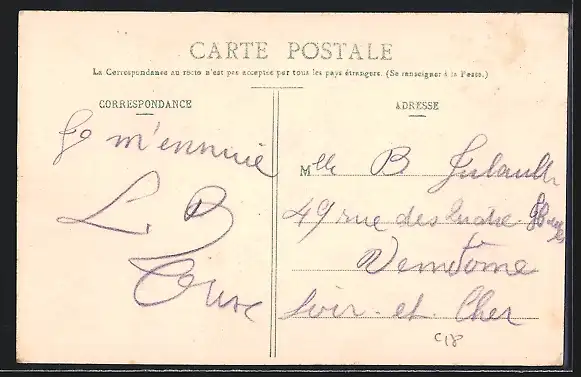 CARTE POSTALE
La Correspondance au recto n'est pas acceptée par tous les pays étrangers. (Se renseigner à la Poste.)
CORRESPONDANCE
Je m'ennuie
L. B
ADRESSE
Mlle B
49 rue des
Vendôme
Loir-et-Cher